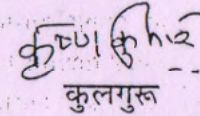 कृष्ण कुमार
कुलगुरू